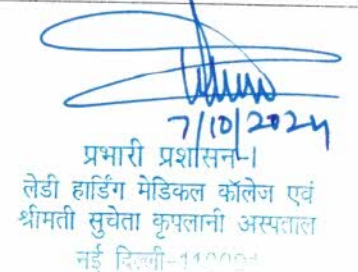 7/10/2024
प्रभारी प्रशासन-I
लेडी हार्डिंग मेडिकल कॉलेज एवं
श्रीमती सुचेता कृपलानी अस्पताल
नई दिल्ली-110001